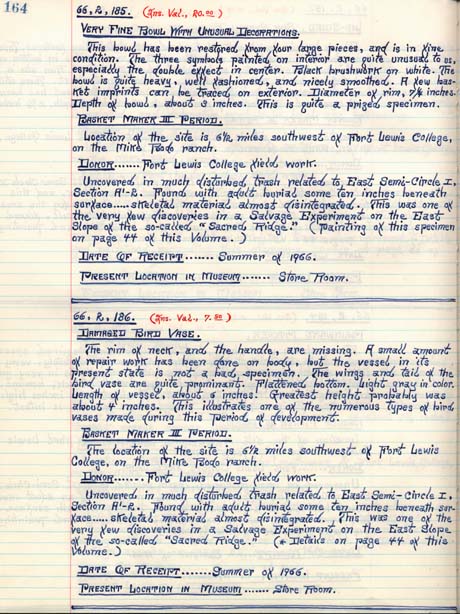 164
66, 2, 185. (Ins. Val., 20.00)
Very Fine Bowl With Unusual Decorations.
This bowl has been restored from four large pieces, and is in fine
condition. The three symbols painted on interior are quite unusual to us,
especially the double effect in center. Black brushwork on white. The
bowl is quite heavy, well fashioned, and nicely smoothed. A few bas-
ket imprints can be traced on exterior. Diameter of rim, 7⅞ inches.
Depth of bowl, about 3 inches. This is quite a prized specimen.
Basket Maker III Period.
Location of the site is 6½ miles southwest of Fort Lewis College,
on the Mike Bodo ranch.
Donor...... Fort Lewis College field work.
Uncovered in much disturbed trash related to East Semi-Circle I,
Section A'-2. Found with adult burial some ten inches beneath
surface..... skeletal material almost disintegrated. This was one of
the very few discoveries in a Salvage Experiment on the East
Slope of the so-called "Sacred Ridge." (Painting of this specimen
on page 44 of this Volume.)
Date Of Receipt....... Summer of 1966.
Present Location in Museum...... Store Room.
66, 2, 186. (Ins. Val., 7.50)
Damaged Bird Vase.
The rim of neck, and the handle, are missing. A small amount
of repair work has been done on body, but the vessel in its
present state is not a bad specimen. The wings and tail of the
bird vase are quite prominent. Flattened bottom. Light gray in color.
Length of vessel, about 6 inches. Greatest height probably was
about 4 inches. This illustrates one of the numerous types of bird
vases made during this Period of development.
Basket Maker III Period.
The location of the site is 6½ miles southwest of Fort Lewis
College, on the Mike Bodo ranch.
Donor...... Fort Lewis College field work.
Uncovered in much disturbed trash related to East Semi-Circle I,
Section A'-2. Found with adult burial some ten inches beneath sur-
face..... skeletal material almost disintegrated. This was one of the
very few discoveries in a Salvage Experiment on the East Slope
of the so-called "Sacred Ridge." (* Details on page 44 of this
Volume.)
Date Of Receipt....... Summer of 1966.
Present Location in Museum..... Store Room.